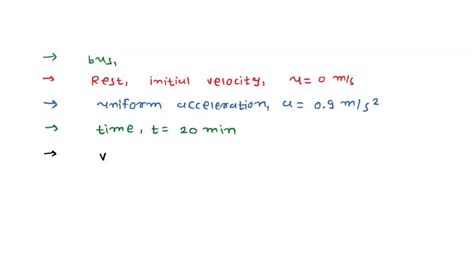 → bus,
→ Rest, initial velocity, u = 0 m/s
→ uniform acceleration, a = 0.9 m/s²
→ time, t = 20 min
→ v